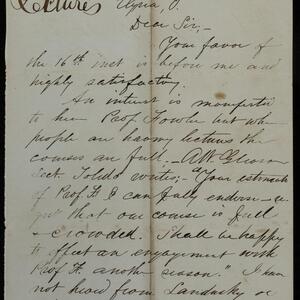 Lectures
Elyria O.
Dear Sir,-
Your favor of
the 16th inst is before me and
highly satisfactory.
An interest is manifested
to hear Prof. Fowler but when
people are having lectures the
courses are full. -
Sect. Toledo writes; - "Your estimate
of Prof. F. I can fully endorse -
that our course is full
- crowded. Shall be happy
to effect an engagement with
Prof. F. another season." I have
not heard from Sandusky or